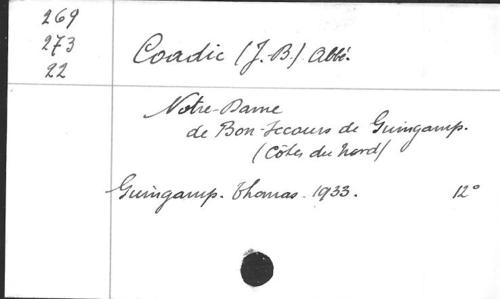 269
273
22
Coadic (J.-B.) Abbé.
Notre-Dame
de Bon-Secours de Guingamp.
(Côtes du Nord)
Guingamp. Thomas. 1933. 12°